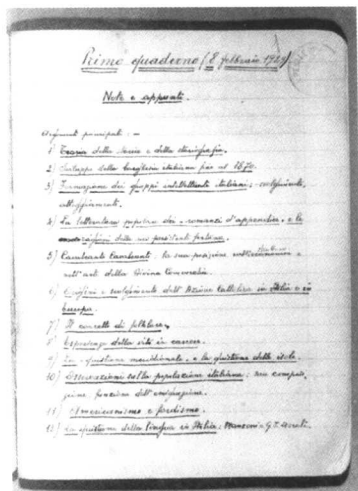 Primo quaderno (8 febbraio 1929)
Note e appunti.
Argomenti principali: —
1) Teoria della storia e della storiografia.
2) Sviluppo della borghesia italiana fino al 1870.
3) Formazione dei gruppi intellettuali italiani: svolgimento,
atteggiamenti.
4) La letteratura popolare dei "romanzi d'appendice" e le
ragioni della sua persistente fortuna.
5) Cavalcante Cavalcanti: la sua posizione
nell'arte della Divina Commedia.
6) Origini e svolgimento dell'Azione Cattolica in Italia e in
Europa.
7) Il concetto di folklore.
8) Esperienze della vita in carcere.
9) La "quistione meridionale" e la quistione delle isole.
10) Osservazioni sulla popolazione italiana: sua composi-
zione, funzione dell'emigrazione.
11) Americanismo e fordismo.
12) La quistione della lingua in Italia: Manzoni e G. I. Ascoli.